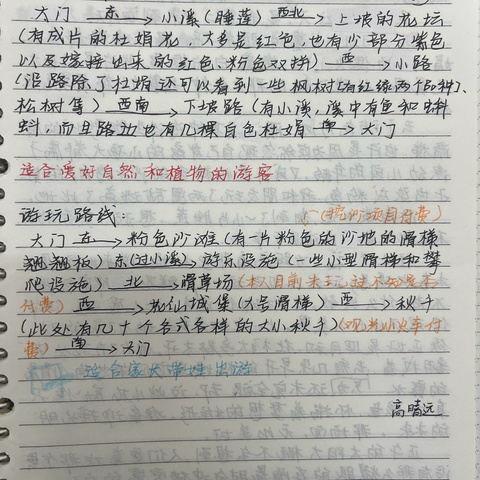 大门 东→ 小溪(睡莲) 西北→ 上坡的花坛
(有成片的杜鹃花,大多是红色,也有少部分紫色
以及嫁接出来的红色、粉色双拼) → 小路
(沿路除了杜鹃还可以看到一些枫树(有红绿两个品种)、
松树等) 西南→ 下坡路(有小溪,溪中有鱼和蝌
蚪,而且路边也有几棵白色杜娟 南→ 大门
适合爱好自然和植物的游客
游玩路线:
(挖沙项目付费)
大门 东→ 粉色沙滩(有一片粉色的沙地的滑梯
翘翘板) 东(过小溪)→ 游乐设施(一些小型滑梯和攀
爬设施) 北→ 滑草场(本人目前未玩过不知是否
付费) 西→ 城堡(大号滑梯) 西→ 秋千
(此处有几十个各式各样的大小秋千)(观光小火车付
费) 南→ 大门
适合家长带娃出游
高晴远